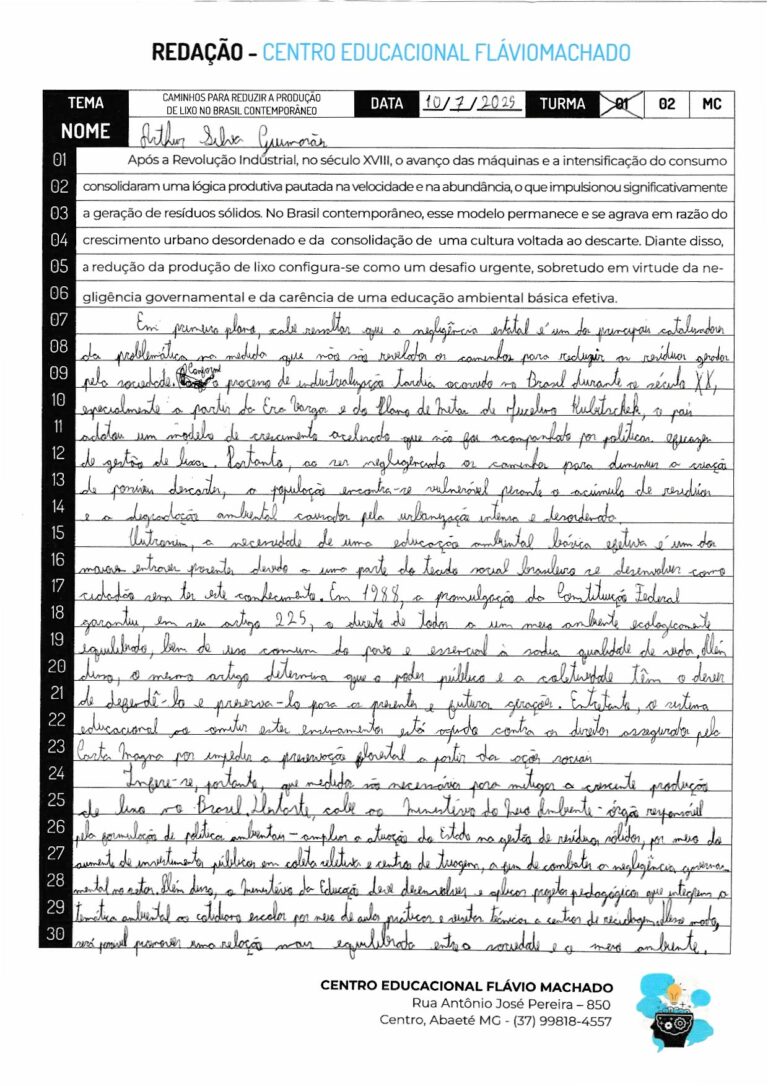 REDAÇÃO - CENTRO EDUCACIONAL FLÁVIOMACHADO
TEMA CAMINHOS PARA REDUZIR A PRODUÇÃO DE LIXO NO BRASIL CONTEMPORÂNEO DATA 10/7/2025 TURMA 01 02 MC
NOME Arthur Silva Guimarães
01 Após a Revolução Industrial, no século XVIII, o avanço das máquinas e a intensificação do consumo
02 consolidaram uma lógica produtiva pautada na velocidade e na abundância, o que impulsionou significativamente
03 a geração de resíduos sólidos. No Brasil contemporâneo, esse modelo permanece e se agrava em razão do
04 crescimento urbano desordenado e da consolidação de uma cultura voltada ao descarte. Diante disso,
05 a redução da produção de lixo configura-se como um desafio urgente, sobretudo em virtude da ne-
06 gligência governamental e da carência de uma educação ambiental básica efetiva.
07 Em primeiro plano, cabe ressaltar que a negligência estatal é um dos principais catalisadores
08 da problemática na medida que não são revelados os caminhos para reduzir os resíduos gerados
09 pela sociedade. Conforme o processo de industrialização tardia ocorrido no Brasil durante o século XX,
10 especialmente a partir da Era Vargas e do Plano de Metas de Juscelino Kubitschek, o país
11 adotou um modelo de crescimento acelerado que não foi acompanhado por políticas eficazes
12 de gestão de lixos. Portanto, ao ser negligenciado os caminhos para diminuir a criação
13 de possíveis descartes, a população encontra-se vulnerável perante o acúmulo de resíduos
14 e a degradação ambiental causados pela urbanização intensa e desordenada
15 Outrossim, a necessidade de uma educação ambiental básica efetiva é um dos
16 maiores entraves presentes devido a uma parte do tecido social brasileiro se desenvolver como
17 cidadão sem ter este conhecimento. Em 1988, a promulgação da Constituição Federal
18 garantiu, em seu artigo 225, o direito de todos a um meio ambiente ecologicamente
19 equilibrado, bem de uso comum do povo e essencial à sadia qualidade de vida. Além
20 disso, o mesmo artigo determina que o poder público e a coletividade têm o dever
21 de defendê-lo e preserva-lo para as presentes e futuras gerações. Entretanto, o sistema
22 educacional ao omitir estes ensinamentos está agindo contra os direitos assegurados pela
23 Carta Magna por impedir a preservação florestal a partir das ações sociais
24 Infere-se, portanto, que medidas são necessárias para mitigar a crescente produção
25 de lixo no Brasil. Destarte, cabe ao Ministério do Meio Ambiente - órgão responsável
26 pela formulação de políticas ambientais - ampliar a atuação do Estado na gestão de resíduos sólidos, por meio do
27 aumento de investimentos públicos em coleta seletiva e centros de triagem, a fim de combater a negligência governa-
28 mental no setor. Além disso, o Ministério da Educação deve desenvolver e aplicar projetos pedagógicos que integrem a
29 temática ambiental ao cotidiano escolar por meio de aulas práticas e visitas técnicas a centros de reciclagem. Desse modo,
30 será possível promover uma relação mais equilibrada entre a sociedade e o meio ambiente.
CENTRO EDUCACIONAL FLÁVIO MACHADO
Rua Antônio José Pereira – 850
Centro, Abaeté MG - (37) 99818-4557